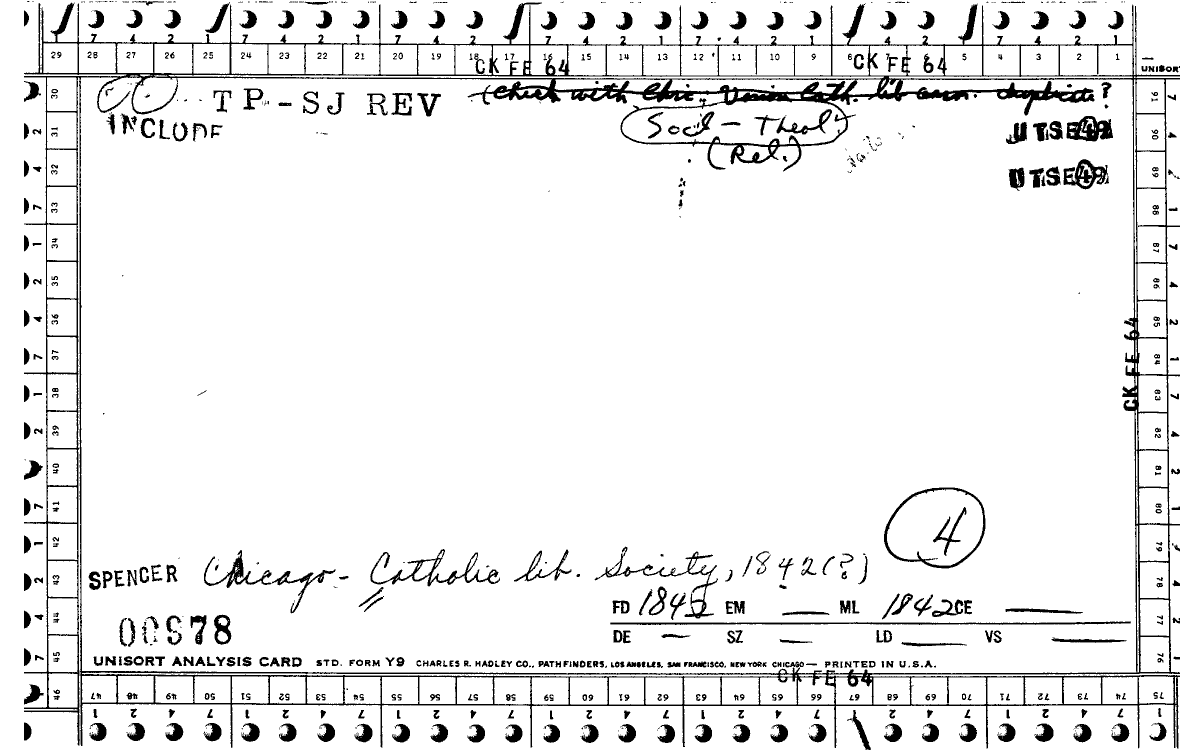 7 4 2 1 7 4 2 1 7 4 2 1 7 4 2 1 7 4 2 1 7 4 2 1 7 4 2 1
29 28 27 26 25 24 23 22 21 20 19 18 17 16 15 14 13 12 11 10 9 8 7 6 5 4 3 2 1
CK FE 64 CK FE 64 UNISORT
TP-SJ REV (Check with Chic. Union Cath. lib assn. duplicate?
INCLUDE Socl - Theol UTSE49
(Rel.)
UTSE49
30 31 32 33 34 35 36 37 38 39 40 41 42 43 44 45 46
1 2 4 7 1 2 4 7 1 2 4 7 1 2 4 7
91 90 89 88 87 86 85 84 83 82 81 80 79 78 77 76 75
CK FE 64
4
SPENCER Chicago - Catholic lib. Society, 1842(?)
FD 1842 EM — ML 1842 CE —
00978 DE — SZ — LD — VS —
UNISORT ANALYSIS CARD STD. FORM Y9 CHARLES R. HADLEY CO., PATHFINDERS, LOS ANGELES, SAN FRANCISCO, NEW YORK CHICAGO — PRINTED IN U.S.A.
CK FE 64
47 48 49 50 51 52 53 54 55 56 57 58 59 60 61 62 63 64 65 66 67 68 69 70 71 72 73 74
1 2 4 7 1 2 4 7 1 2 4 7 1 2 4 7 1 2 4 7 1 2 4 7 1 2 4 7